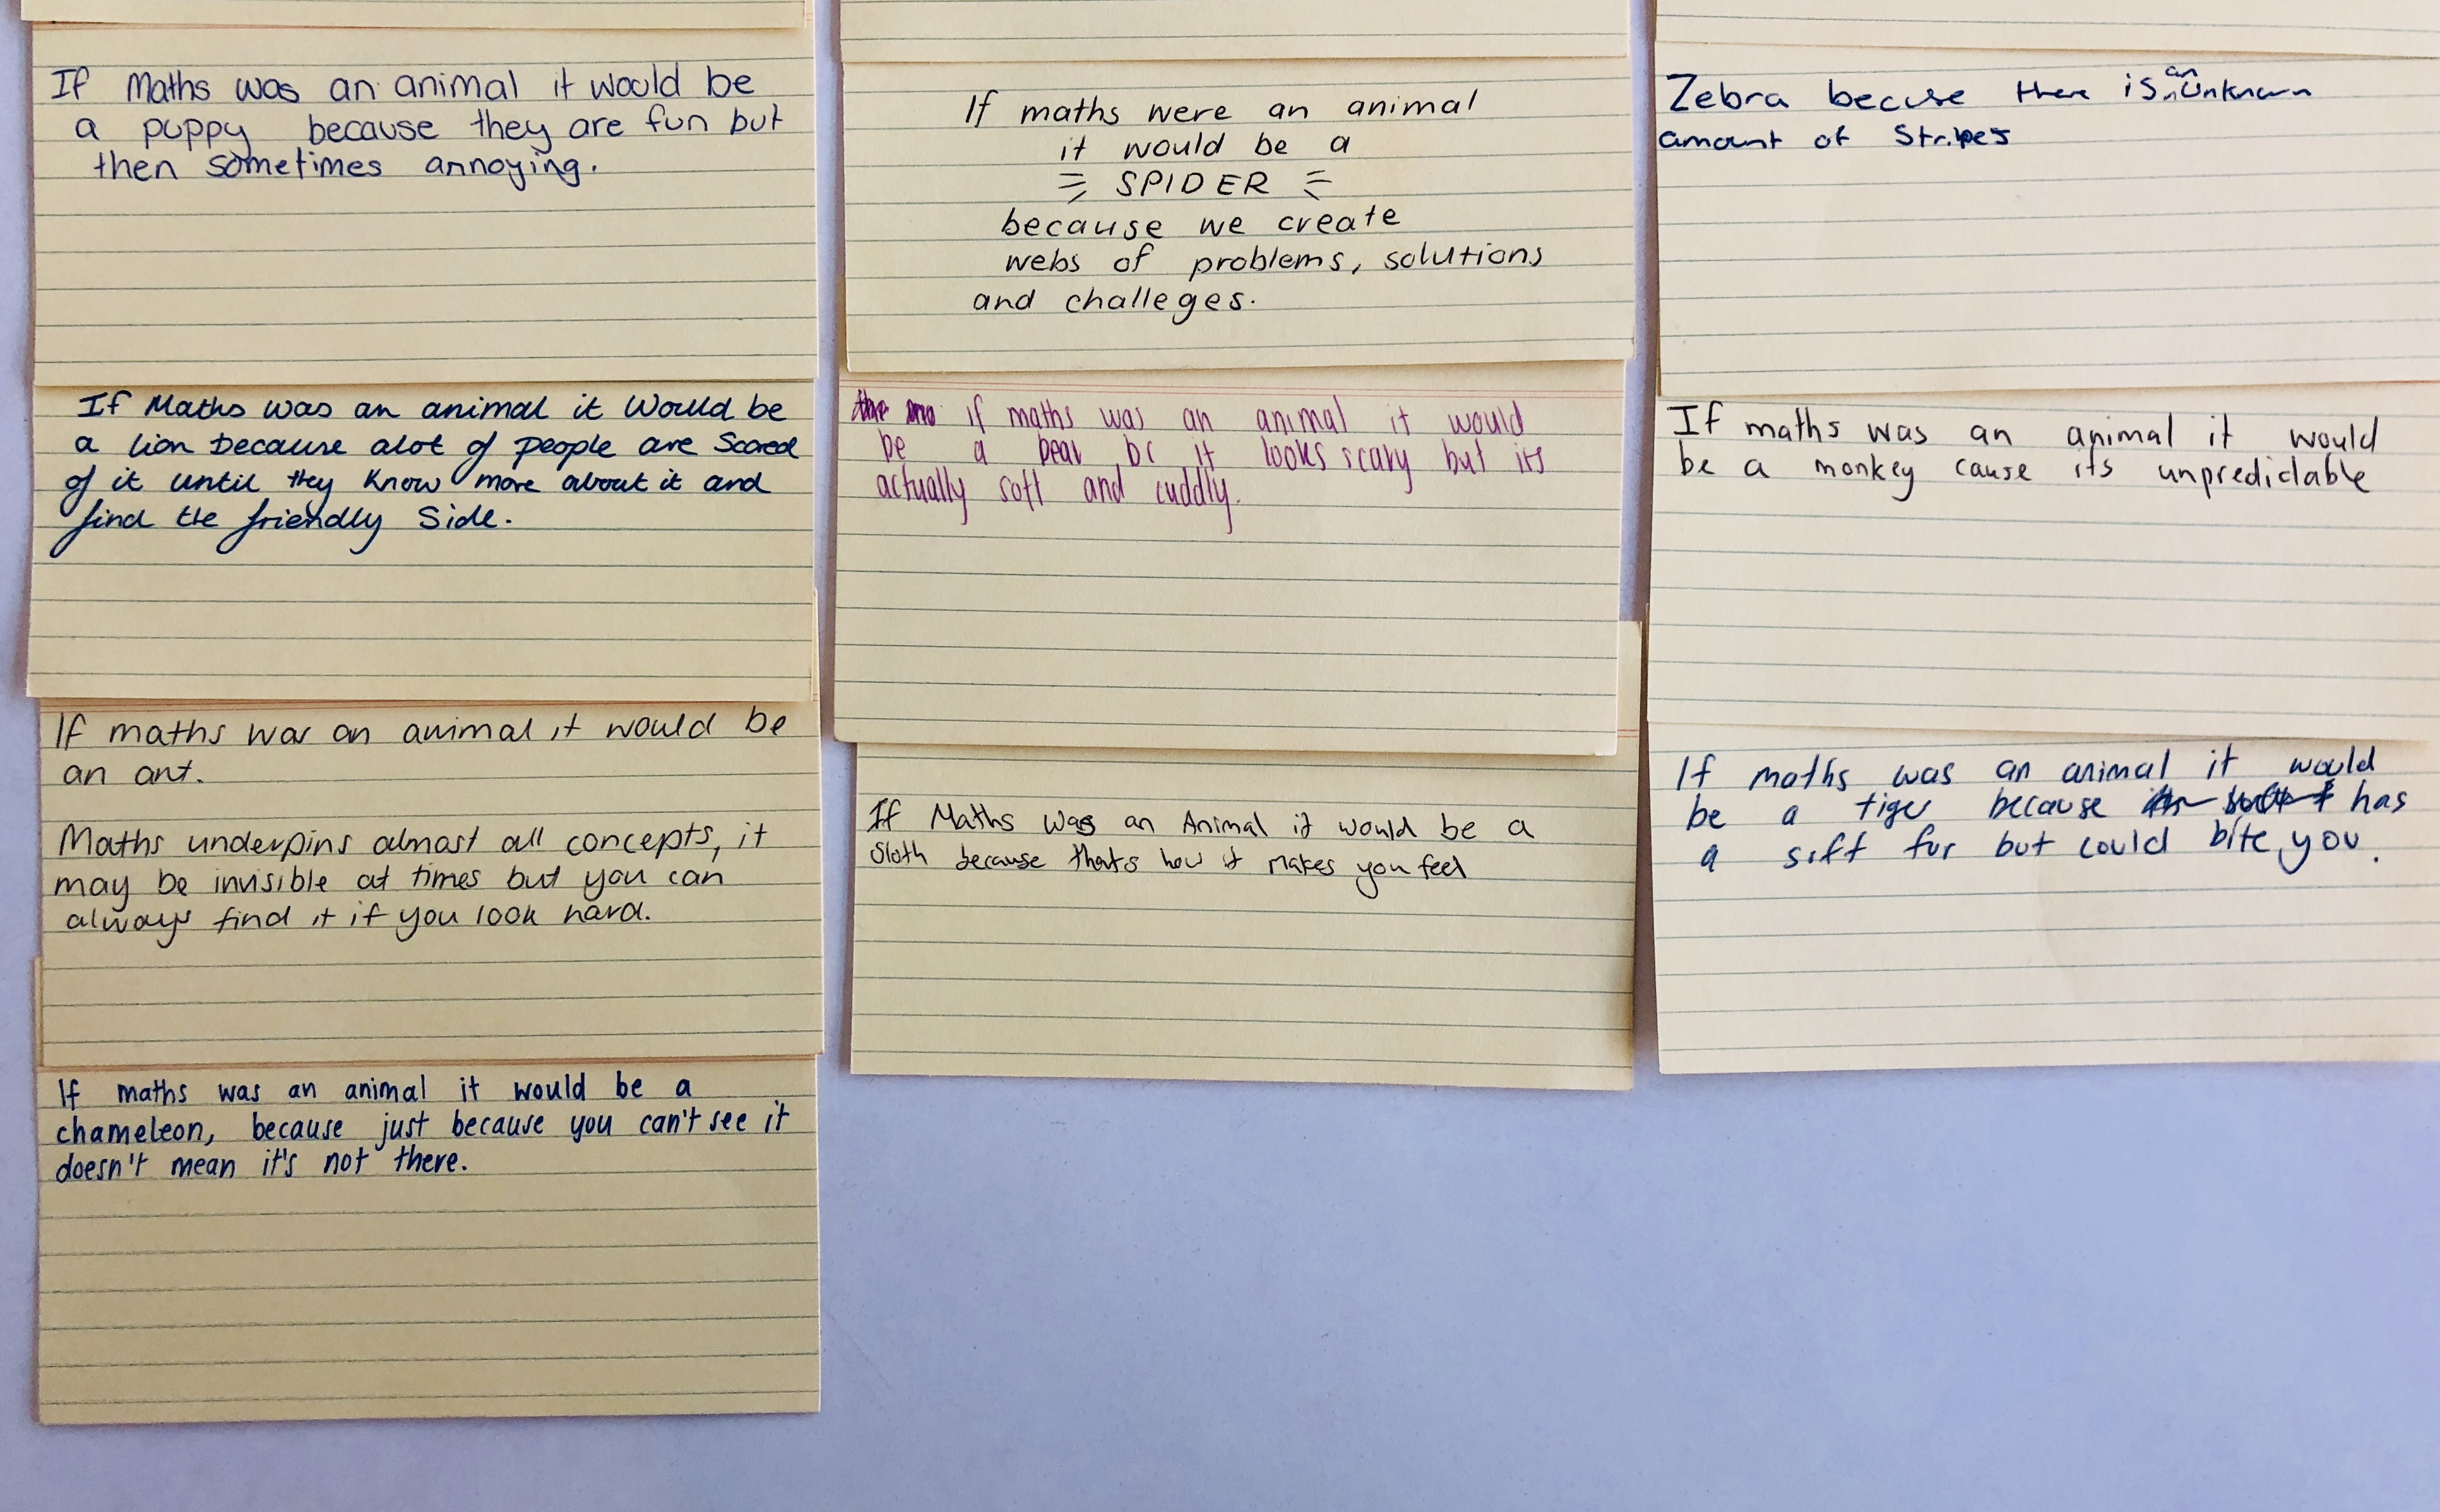 If Maths was an animal it would be
a puppy because they are fun but
then sometimes annoying.
If Maths was an animal it Would be
a lion because alot of people are Scared
of it until they Know more about it and
find the friendly Side.
If maths was an animal it would be
an ant.
Maths underpins almost all concepts, it
may be invisible at times but you can
always find it if you look hard.
If maths was an animal it would be a
chameleon, because just because you can't see it
doesn't mean it's not there.
If maths were an animal
it would be a
SPIDER
because we create
webs of problems, solutions
and challeges.
if maths was an animal it would
be a bear bc it looks scary but its
actually soft and cuddly.
If Maths Was an Animal it would be a
Sloth because thats how it makes you feel
Zebra becuse there is an Unknown
amount of Stripes
If maths was an animal it would
be a monkey cause its unpredictable
If maths was an animal it would
be a tiger because has
a soft fur but could bite you.